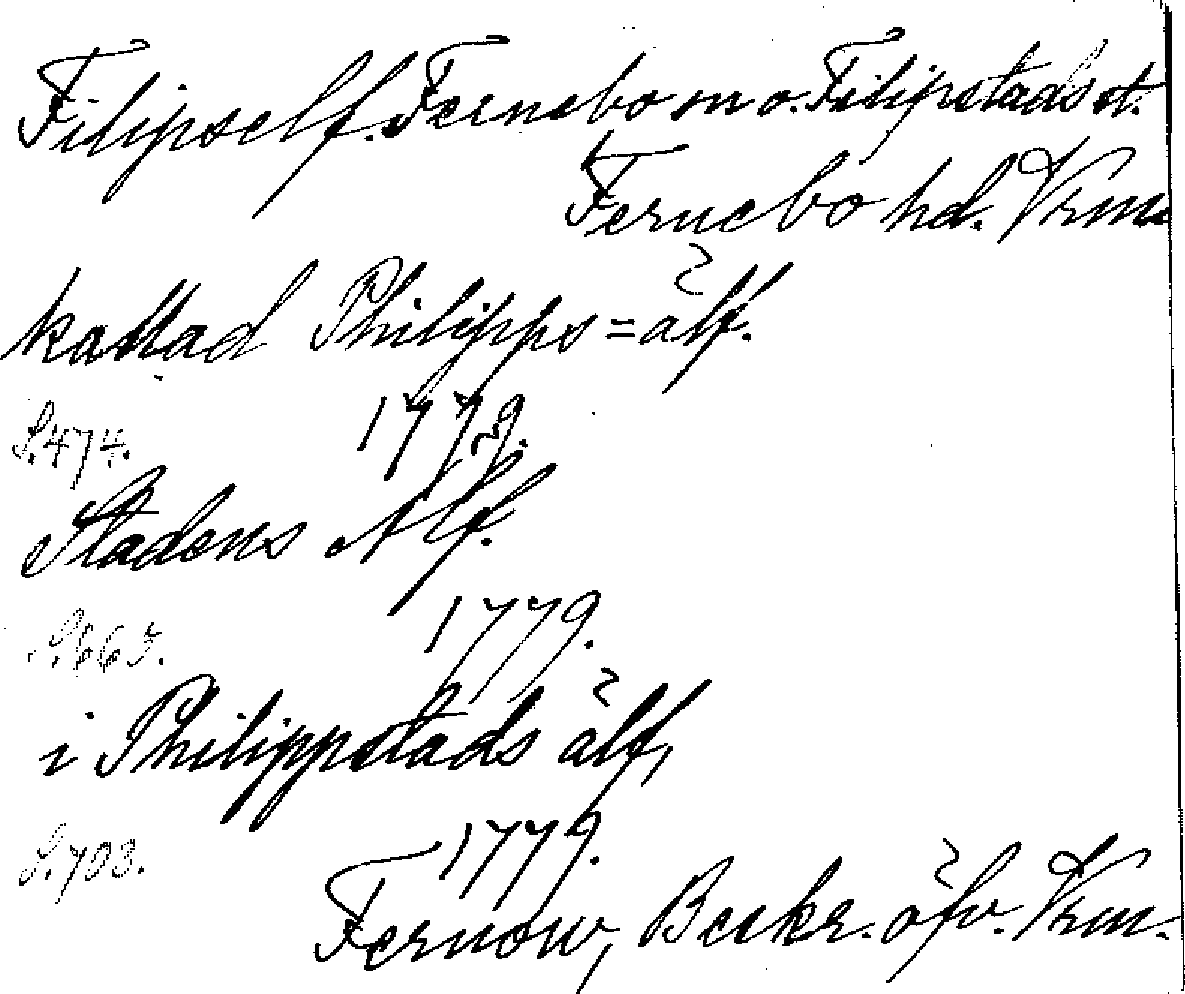 Filipself. Fernebo sn o. Filipstads st.
Fernebo hd. Vrm.
kallad Philipps=älf.
S.474. 1779.
Stadens Alf.
S.663. 1779.
i Philippstads älf,
S.703. 1779.
Fernow, Beskr. öfv. Vrm.